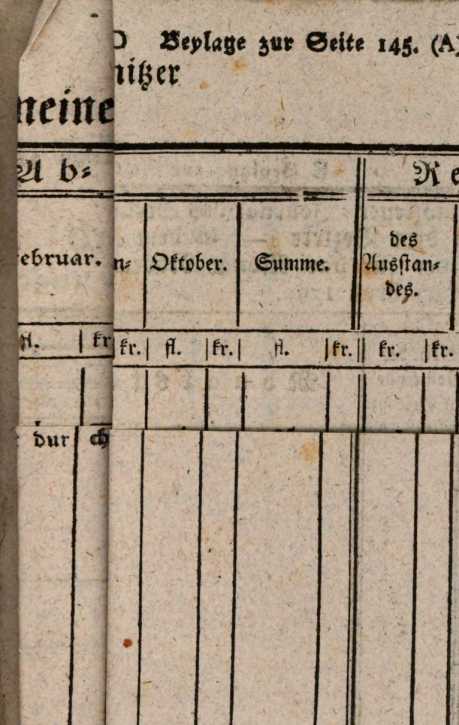 D Beylage zur Seite 145. (A)
nitzer
meine
A b- R e
ebruar. n- Oktober. Summe. des
Ausstan-
des.
fl. kr. kr. fl. kr. fl. kr. kr. kr.
dur ch